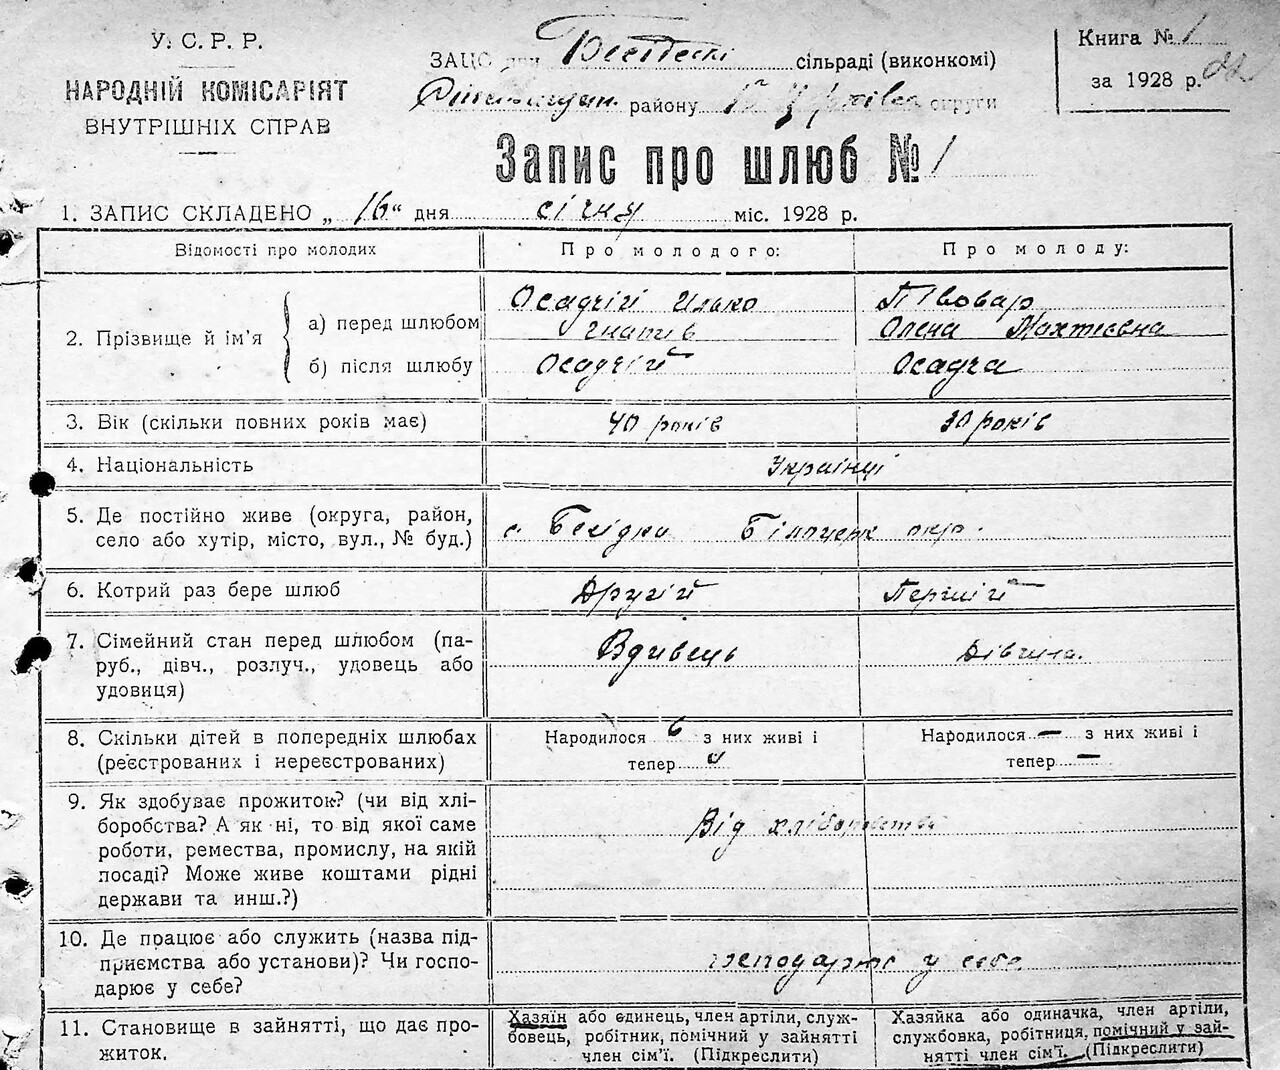 У. С. Р. Р.
НАРОДНІЙ КОМІСАРІЯТ
ВНУТРІШНІХ СПРАВ
ЗАЦС при сільраді (виконкомі)
району округи
Книга № 1
за 1928 р.
Запис про шлюб № 1
1. ЗАПИС СКЛАДЕНО „ 16 “ дня січня міс. 1928 р.
Відомості про молодих
Про молодого:
Про молоду:
2. Прізвище й ім'я
а) перед шлюбом
Осадчій Илько
Гнатів
Півовар
Олена
б) після шлюбу
Осадчій
Осадча
3. Вік (скільки повних років має)
40 років
30 років
4. Національність
Українці
5. Де постійно живе (округа, район,
село або хутір, місто, вул., № буд.)
с. Білоцерк окр.
6. Котрий раз бере шлюб
Другій
Першій
7. Сімейний стан перед шлюбом (па-
руб., дівч., розлуч., удовець або
удовиця)
Вдивець
Дівчина.
8. Скільки дітей в попередніх шлюбах
(реєстрованих і нереєстрованих)
Народилося 6 з них живі і
тепер
Народилося — з них живі і
тепер —
9. Як здобуває прожиток? (чи від хлі-
боробства? А як ні, то від якої саме
роботи, ремества, промислу, на якій
посаді? Може живе коштами рідні
держави та инш.?)
Від хліборобства
10. Де працює або служить (назва під-
приємства або установи)? Чи госпо-
дарює у себе?
господарює у себе
11. Становище в зайнятті, що дає про-
житок.
Хазяїн або одинець, член артіли, служ-
бовець, робітник, помічний у зайнятті
член сім'ї. (Підкреслити)
Хазяйка або одиначка, член артіли,
службовка, робітниця, помічний у зай-
нятті член сім'ї. (Підкреслити)